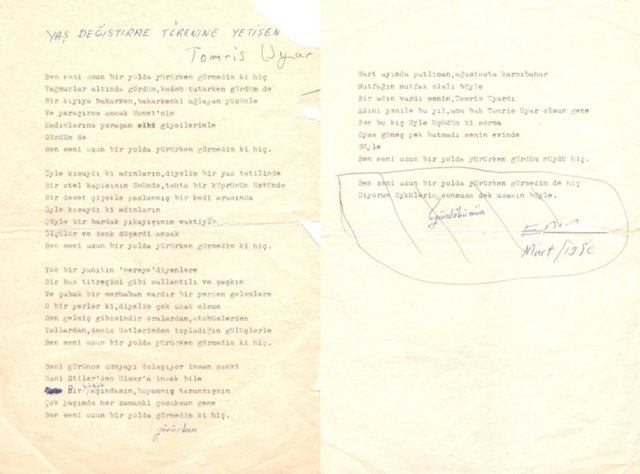 YAŞ DEĞİSTİRME TÖRENİNE YETİŞEN
Tomris Uyar
Ben seni uzun bir yolda yürürken görmedim ki hiç
Yağmurlar altında gördüm, kadeh tutarken gördüm de
Bir kıyıya bakarken, bakarkenki ağlayan yüzünle
Ve yaraşırsa ancak Monet'nin
Kadınlarına yaraşan giysilerinle
Gördüm de
Ben seni uzun bir yolda yürürken görmedim ki hiç.
Öyle kısaydı ki adımların, diyelim bir yaz tatilinde
Bir otel kapısının önünde, tahta bir köprünün üstünde
Bir demet çiçekle paslanmış bir kedi arasında
Öyle kısaydı ki adımların
Şöyle bir bardak yıkayışının vaktiyle
Ölçülür ve denk düşerdi ancak
Ben seni uzun bir yolda yürürken görmedim ki hiç.
Yok bir yanıtın 'nereye' diyenlere
Bir buz titreşimi gibi sallantılı ve şaşkın
Ve çabuk bir merhaban vardır bir yerden gelenlere
O bir yerler ki, diyelim çok uzak olsun
Sen gelmiş gibisindir oralardan, otobüslerden
Yollardan, deniz üstlerinden topladığın gülüşlerle
Ben seni uzun bir yolda yürürken görmedim ki hiç.
Seni görünce dünyayı dolaşıyor insan sanki
Hani Etiler'den Hisar'a insek bile
Bir yaşındasın, boyanmış taranmışsın
Çok yaşında her zamanki çocuksun gene
Ben seni uzun bir yolda görmedim ki hiç.
yürürken
Mart ayında patlıcan, ağustosta karnıbahar
Mutfağın mutfak olalı böyle
Bir adın vardı senin, Tomris Uyardı
Adını yenile bu yıl, ama bak Tomris Uyar olsun gene
Ben bu kış öyle üşüdüm ki sorma
Oysa güneş pek batmadı senin evinde
Söyle
Ben seni uzun bir yolda yürürken gördüm müydü hiç.
Ben seni uzun bir yolda yürürken görmedim de hiç
Diyorum öykülerin, sonsuza dek uzasın böyle.
Mart/1980